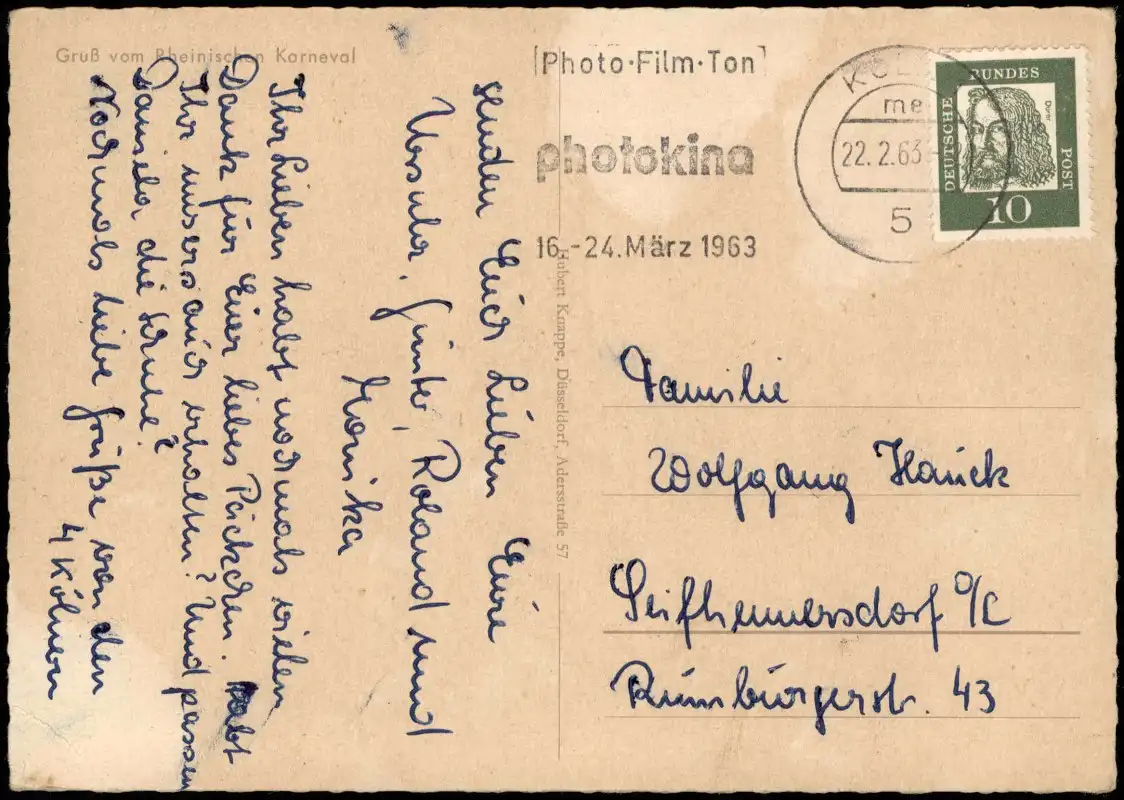 Gruß vom Rheinischen Karneval
senden Euch Lieben Eure
Ursula, Günter, Roland und
Monika
Ihr Lieben habt nochmals vielen
Dank für Euer liebes Päckchen. Habt
Ihr unsers auch erhalten? Und passen
Daniela die Schuhe?
Nochmals liebe Grüße von den
4 Kölnern
Hubert Knappe, Düsseldorf, Adersstraße 57
Photo·Film·Ton
photokina
16.-24. März 1963
KÖLN
22.2.63
5
DEUTSCHE BUNDES POST
Dürer
10
Familie
Wolfgang Hauck
Seifhennersdorf O/L
Rumburgerstr. 43